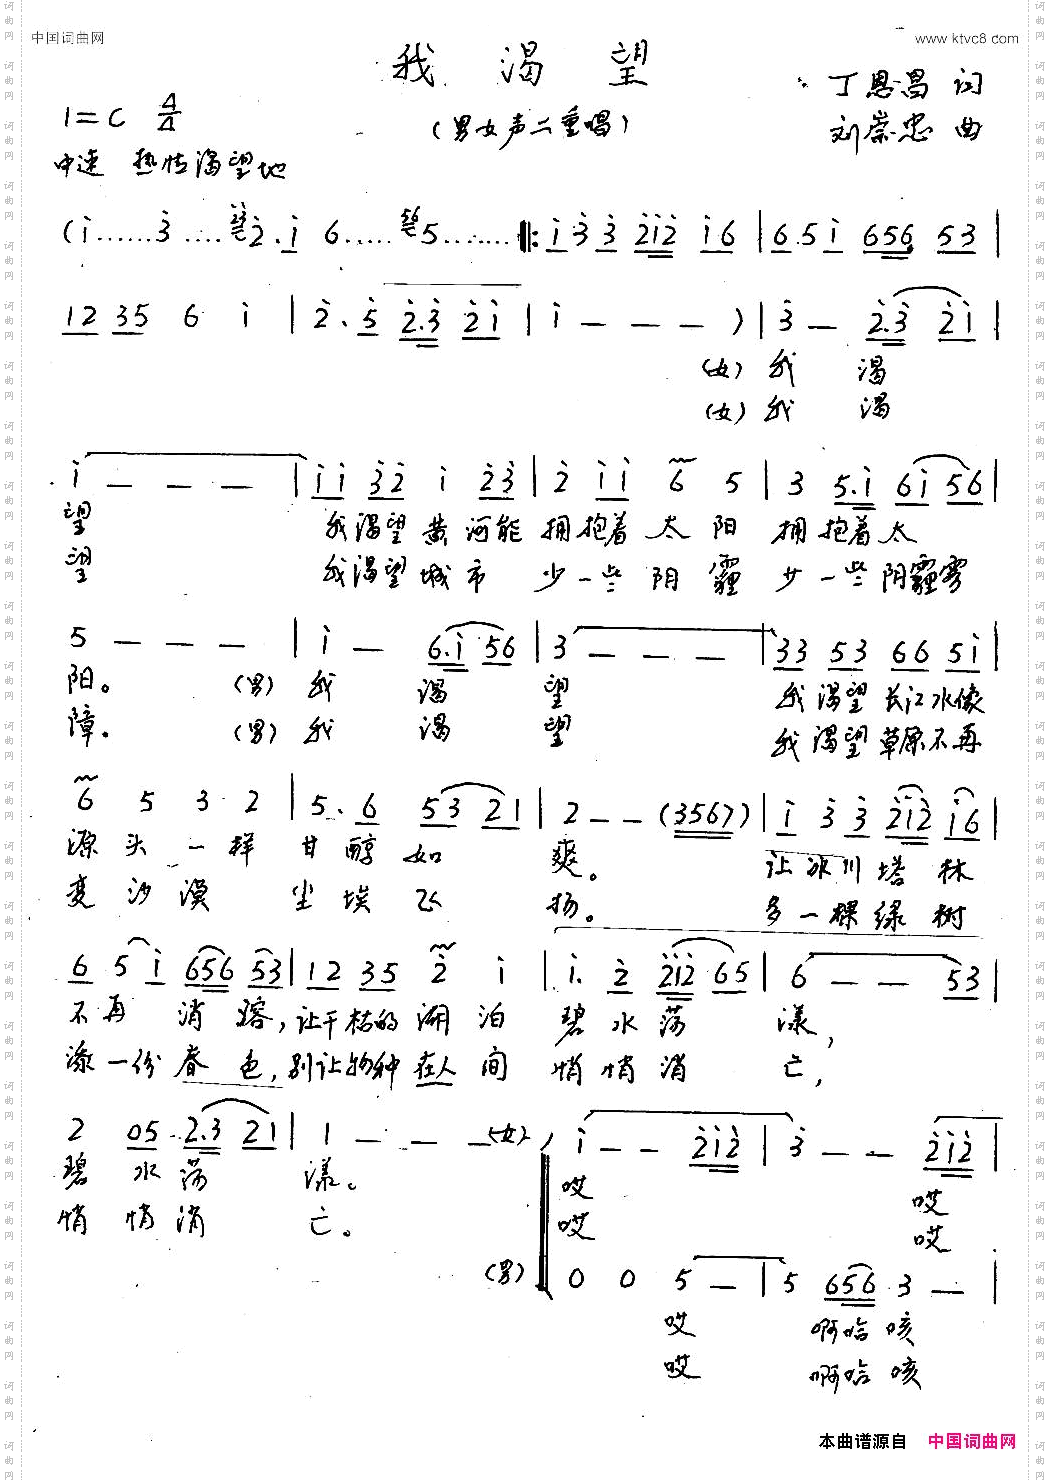 中国词曲网
www.ktvc8.com
我渴望
(男女声二重唱)
丁恩昌 词
刘崇忠 曲
1=C 4/4
中速 热情渴望地
(i……3……2.i 6……5……‖: i 3 3 2i2 i6 | 6.5i 656 53 |
12 35 6 i | 2.5 2.3 2i | i — — — ) | 3 — 2.3 2i |
(女)我 渴
(女)我 渴
i — — — | ii 32 i 23 | 2 ii 6 5 | 3 5.i 6i 56 |
望 我渴望黄河能 拥抱着太阳 拥抱着太
望 我渴望城市 少一些阴霾 少一些阴霾雾
5 — — — | i — 6.i 56 | 3 — — — | 33 53 66 5i |
阳。 (男)我 渴 望 我渴望长江水像
障。 (男)我 渴 望 我渴望草原不再
6 5 3 2 | 5.6 53 21 | 2 — — (3567) | i 3 3 2i2 i6 |
源头一样 甘醇如 爽。 让冰川塔林
变沙漠 尘埃飞 扬。 多一棵绿树
6 5 i 656 53 | 12 35 2 i | i. 2 2i2 65 | 6 — — 53 |
不再消溶,让干枯的湖泊 碧水荡 漾,
添一份春色,别让物种在人间 悄悄消 亡,
2 05 2.3 21 | 1 — — — (女) i — — 2i2 | 3 — — 2i2 |
碧 水荡 漾。 哎 哎
悄 悄消 亡。 哎 哎
(男) 0 0 5 — | 5 656 3 — |
哎 啊哈咳
哎 啊哈咳
本曲谱源自 中国词曲网